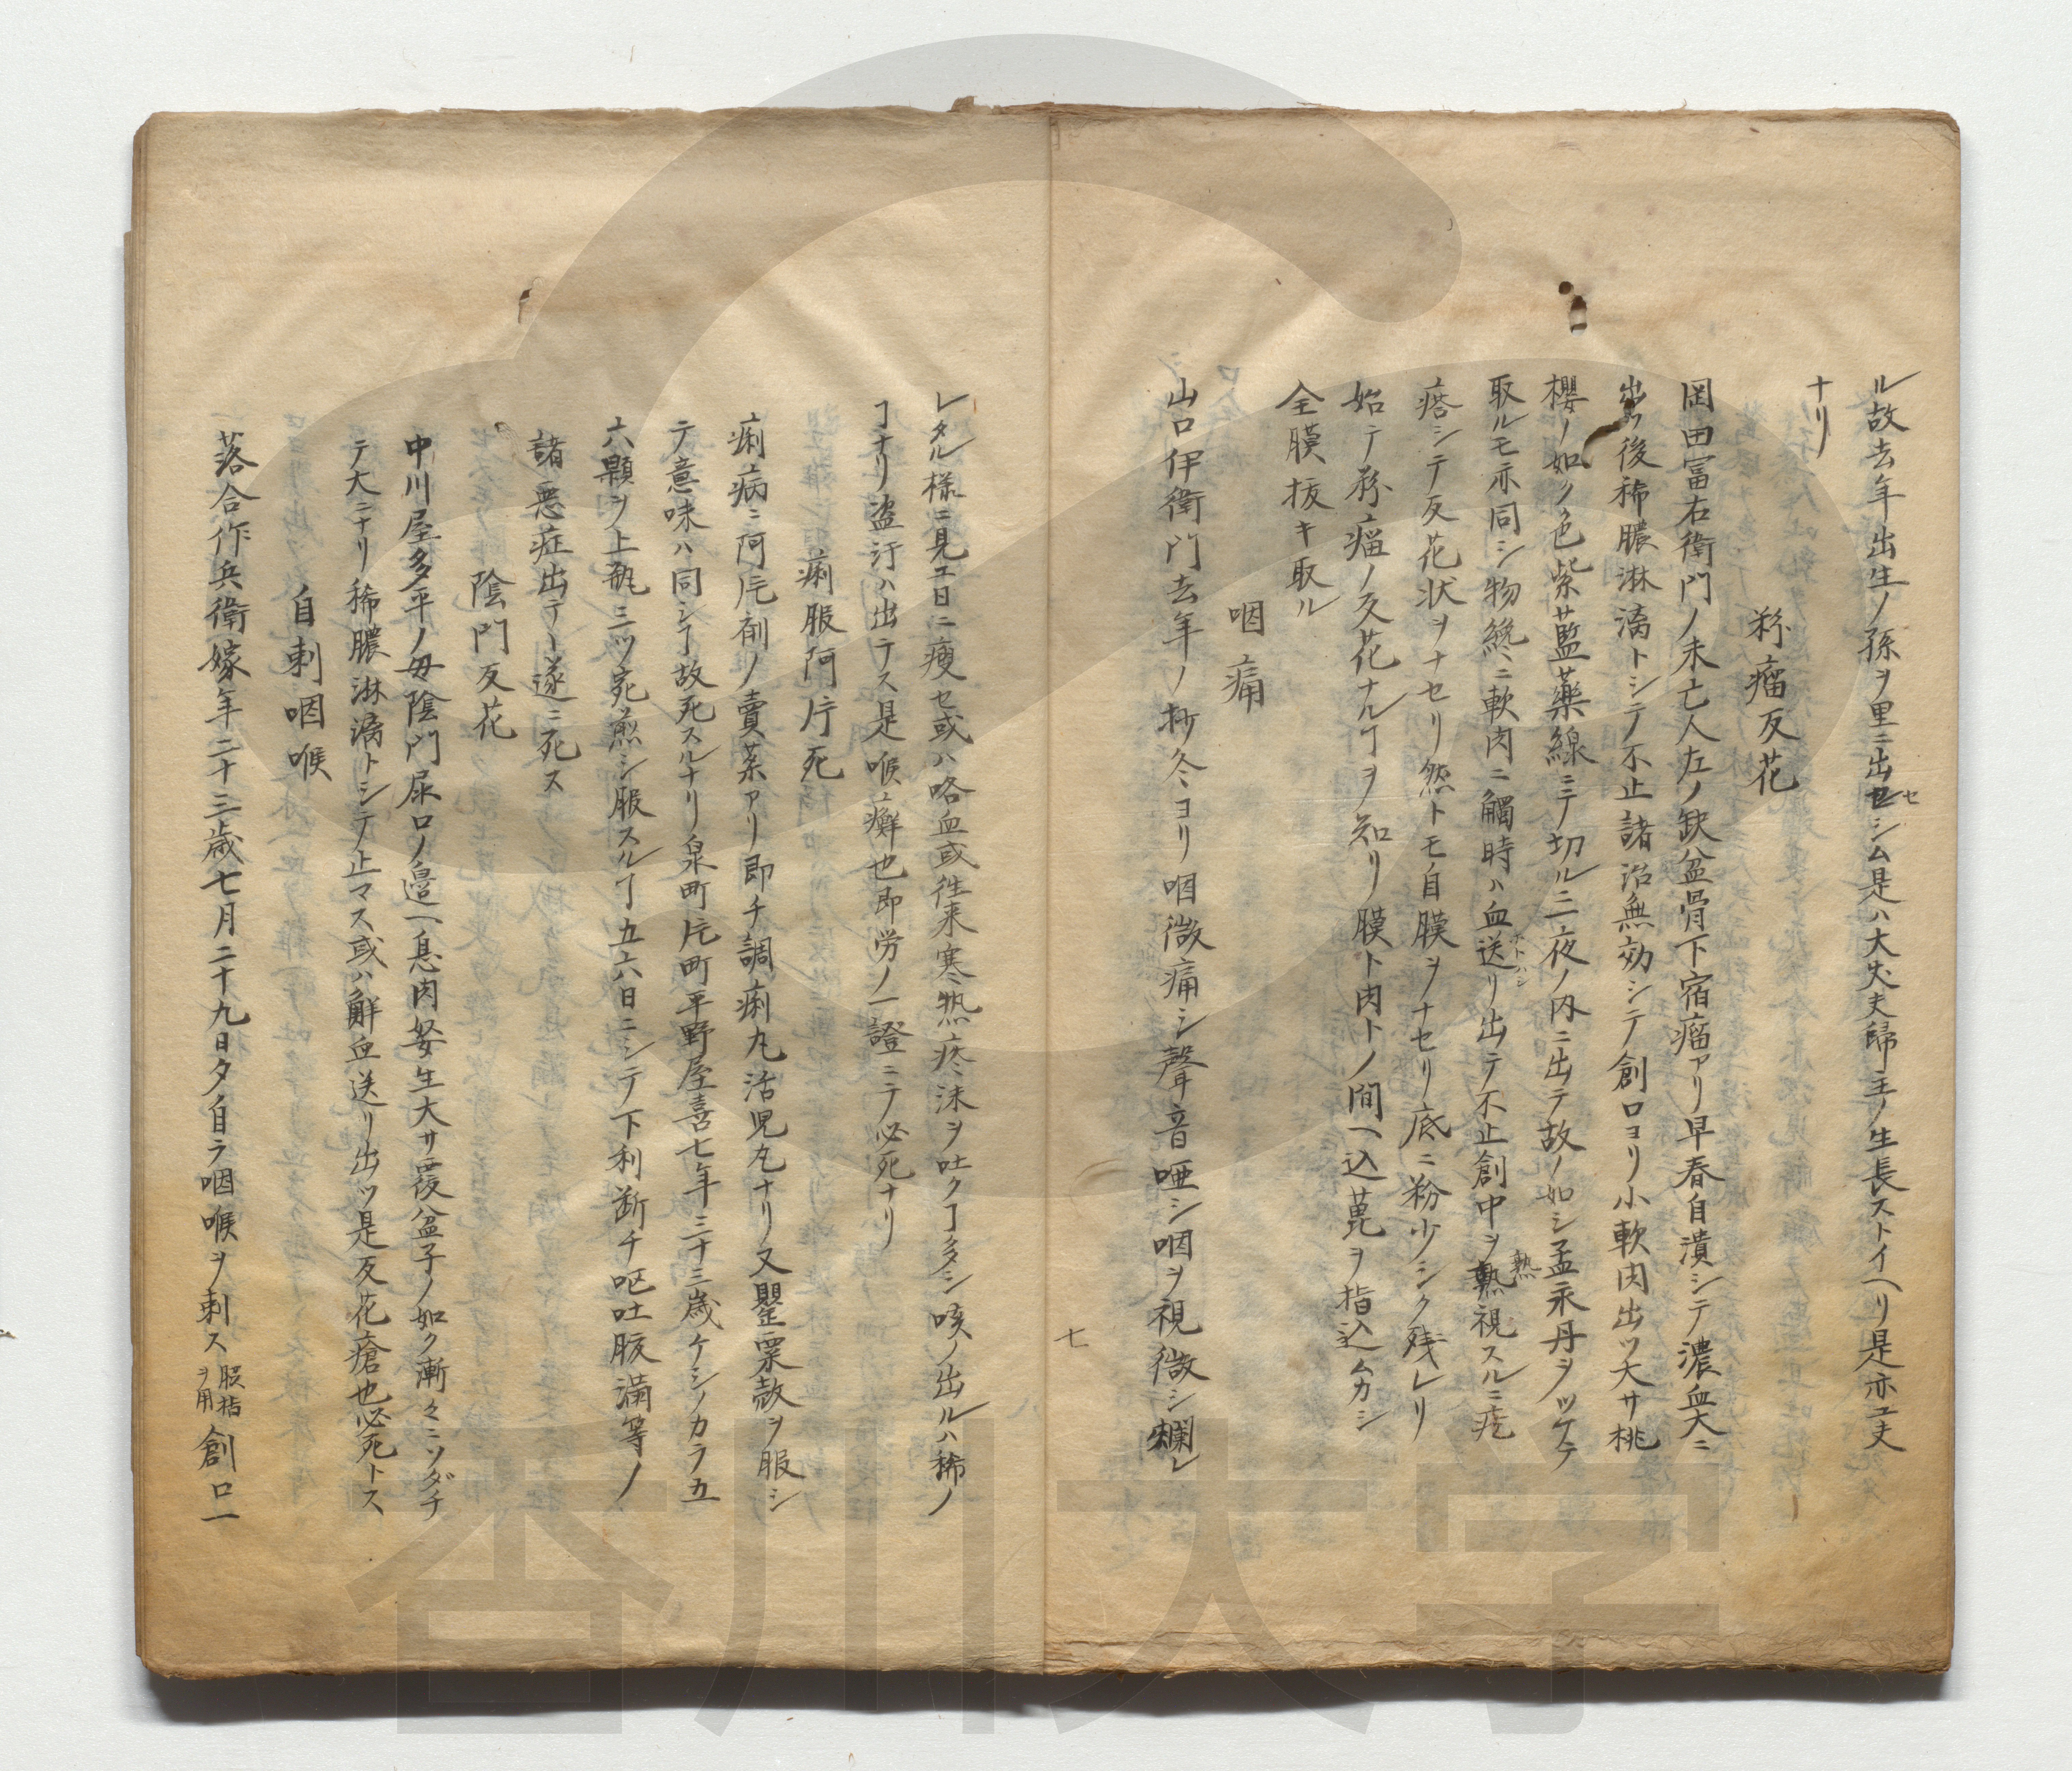 ル故去年出生ノ孫ヲ里ニ出セシム是ハ大丈夫歸主ノ生長ストイヘリ是亦工夫
ナリ
粉瘤反花
岡田冨右衛門ノ未亡人左ノ缺盆骨下宿瘤アリ早春自潰シテ濃血大ニ
出ツ後稀膿淋漓トシテ不止諸治無効シテ創口ヨリ小軟肉出ツ大サ桃
櫻ノ如ク色紫藍藥線ニテ切ル二三夜ノ内ニ出テ故ノ如シ孟永丹ヲツケテ
取ルモ亦同シ物纔ニ軟肉ニ觸時ハ血送リ出テ不止創中ヲ熟視スルニ疙
瘩シテ反花状ヲナセリ然トモ自膜ヲナセリ底ニ粉少シク残レリ
始テ粉瘤ノ反花ナルヿヲ知リ膜ト肉トノ間ヘ込蓖ヲ指込ムカシ
全膜抜キ取ル
咽痛
山口伊衛門去年ノ抄冬ヨリ咽微痛シ聲音唖シ咽ヲ視微シ爛レ
七
レタル様ニ見エ日ニ痩セ或ハ咯血或往来寒熱痰沫ヲ吐クヿ多シ咳ノ出ルハ稀ノ
ヿナリ盗汗ハ出テス是喉癬也即労ノ一證ニテ必死ナリ
痢服阿片死
痢病ニ阿片剤ノ賣薬アリ即チ調痢丸活児丸ナリ又罌粟殻ヲ服シ
テ意味ハ同シヿ故死スルナリ泉町片町平野屋喜七年三十三歳ケシノカラ五
六顆ヲ上瓶三ツ宛煎シ服スルヿ五六日ニシテ下利断チ嘔吐腹満等ノ
諸悪症出テヽ遂ニ死ス
陰門反花
中川屋多平ノ母陰門尿口ノ邉ヘ息肉妄生大サ覆盆子ノ如ク漸々ニソダチ
テ大ニナリ稀膿淋漓トシテ止マス或ハ鮮血送リ出ツ是反花瘡也必死トス
自刺咽喉
落合作兵衛嫁年二十三歳七月二十九日夕自ラ咽喉ヲ刺ス ヲ用 創口一